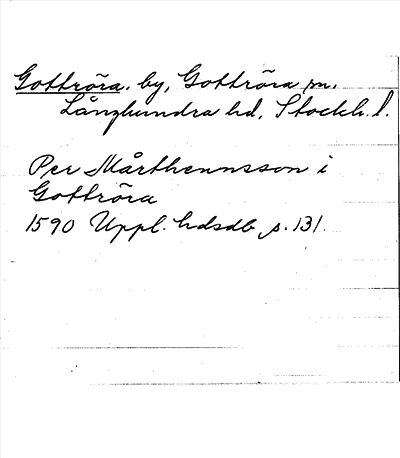 Gottröra. by, Gottröra sn.
Långhundra hd, Stockh. l.
Per Mårthennsson i
Gottröra
1590 Uppl. hdsdb s. 131.